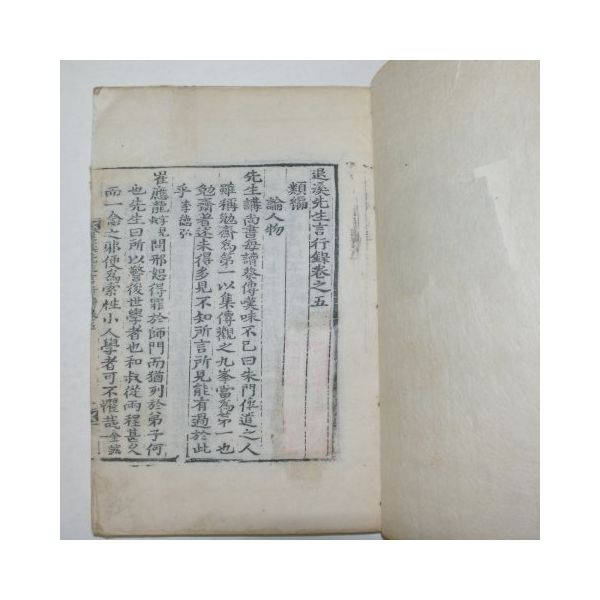 退溪先生言行錄卷之五
類編
論人物
先生講尚書每讀蔡傳嘆味不已曰朱門傳道之人
雖稱勉齋爲第一以集傳觀之九峯當爲第一也
勉齋著述未得多見不知所言所見能有過於此
乎李德弘
崔應龍見問邪恕得罪於師門而猶列於弟子何
也先生曰所以警後世學者也和叔從兩程甚久
而一念之邪便爲索性小人學者可不懼哉金